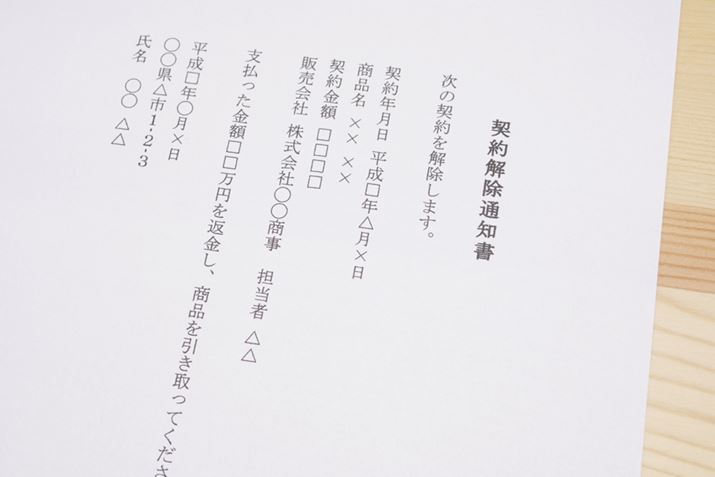 契約解除通知書
次の契約を解除します。
契約年月日 平成□年△月×日
商品名 ×× ××
契約金額 □□□□
販売会社 株式会社○○商事 担当者 △△
支払った金額□□万円を返金し、商品を引き取ってくださ
平成□年○月×日
○○県△市1-2-3
氏名 ○○ △△